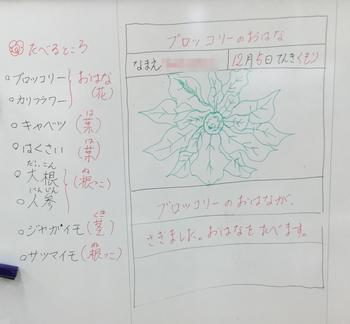 たべるところ
ブロッコリー
カリフラワー
おはな
(花)
キャベツ(葉)
は
はくさい(葉)
は
だいこん
大根
にんじん
人参
(根っこ)
ね
ジャガイモ(茎)
くき
サツマイモ(根っこ)
ね
ブロッコリーのおはな
なまえ
12月5日 てんき くもり
ブロッコリーのおはなが、
さきました。おはなをたべます。